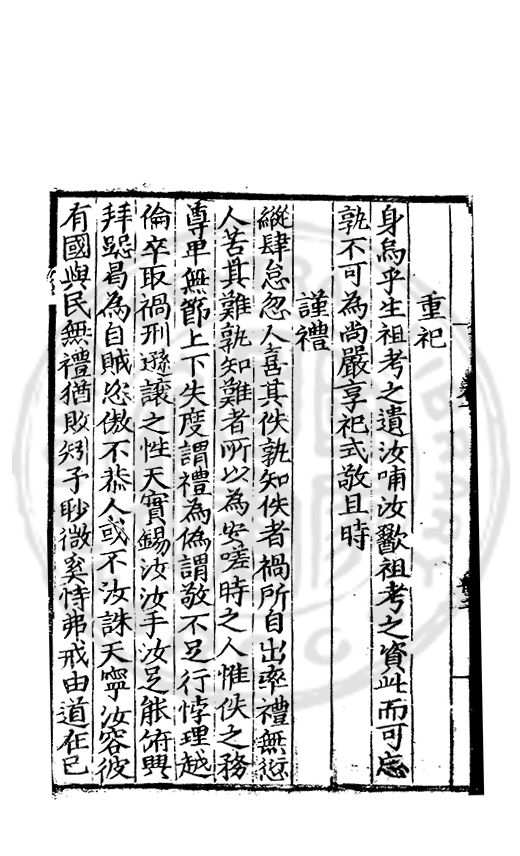 重祀
身烏乎生祖考之遺汝哺汝歠祖考之資此而可忘
孰不可為尚嚴享祀式敬且時
謹禮
縱肆怠忽人喜其佚孰知佚者禍所自出率禮無愆
人苦其難孰知難者所以為安嗟時之人惟佚之務
尊卑無節上下失度謂禮為偽謂敬不足行悖理越
倫卒取禍刑遜讓之性天實錫汝汝手汝足能俯興
拜跽曷為自賊恣傲不恭人或不汝誅天寧汝容彼
有國與民無禮猶敗矧予眇微奚恃弗戒由道在已